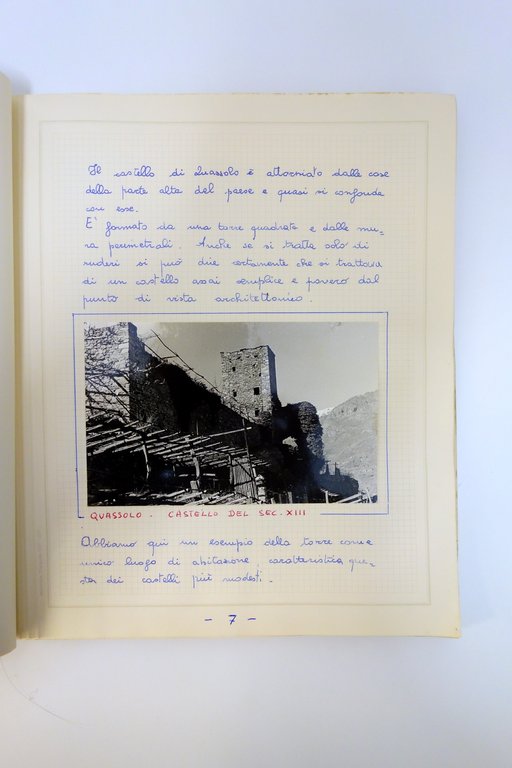 Il castello di Quassolo è attorniato dalle case
della parte alta del paese e quasi si confonde
con esse.
E' formato da una torre quadrata e dalle mu=
ra perimetrali. Anche se si tratta solo di
ruderi si può dire certamente che si trattava
di un castello assai semplice e povero dal
punto di vista architettonico.
QUASSOLO - CASTELLO DEL SEC. XIII
Abbiamo qui un esempio della torre come
unico luogo di abitazione, caratteristica que=
sta dei castelli più modesti.
- 7 -